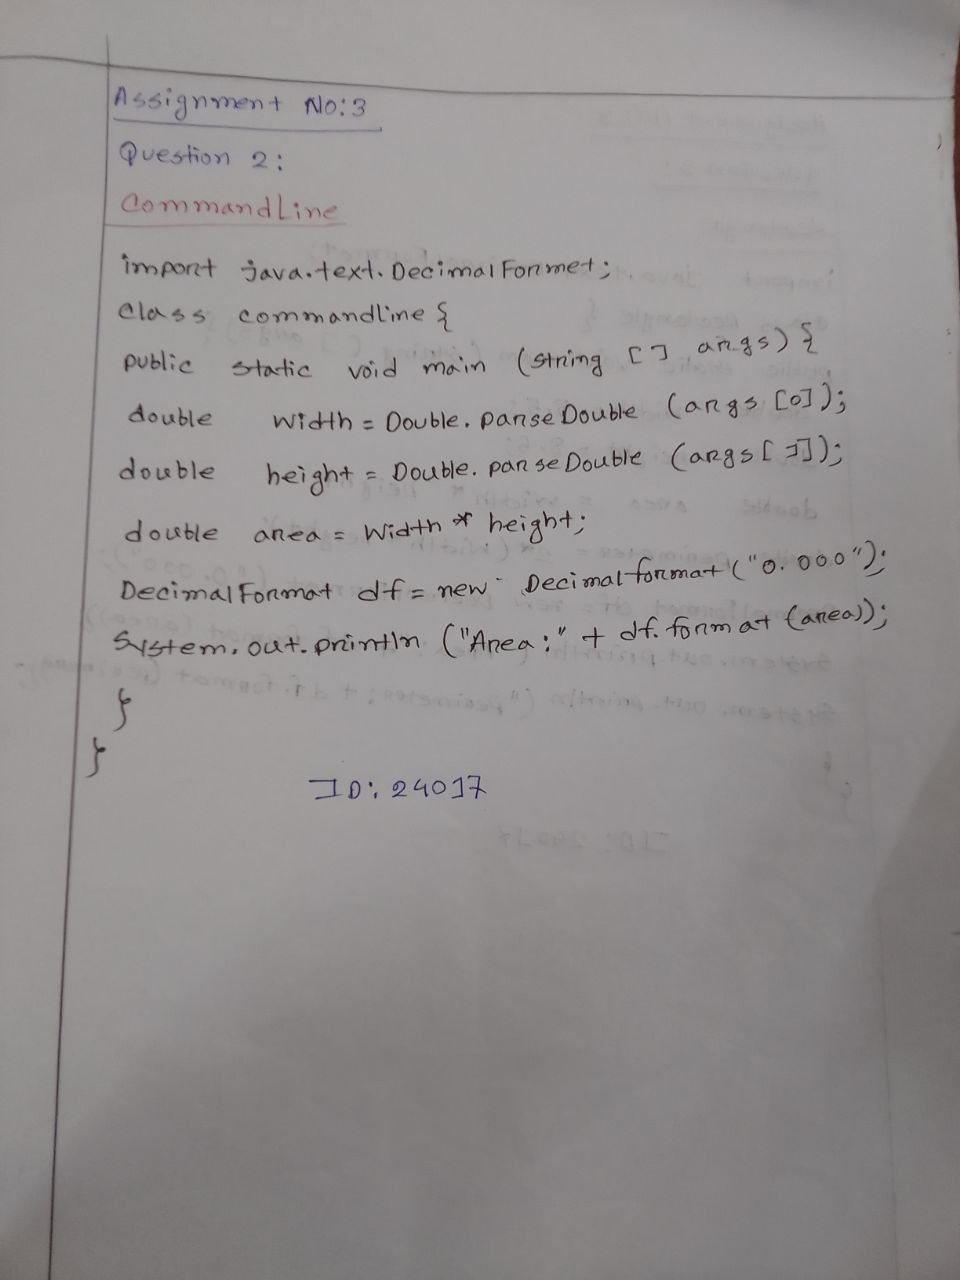 Assignment No:3
Question 2:
CommandLine
import java.text.DecimalFormet;
class commandline {
public static void main (string [] args) {
double width = Double.parseDouble (args [0]);
double height = Double.parseDouble (args [1]);
double area = width * height;
DecimalFormat df = new Decimalformat ("0.000");
System.out.println ("Area:" + df.format (area));
}
}
ID: 24017